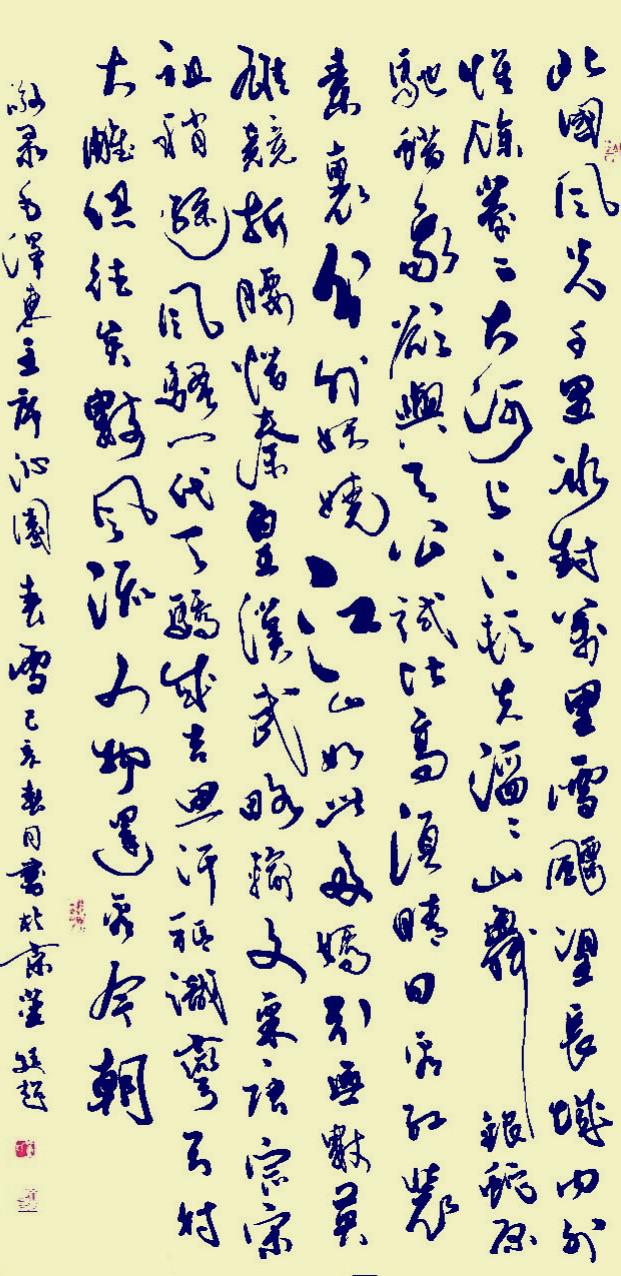 北國風光千里冰封萬里雪飄望長城内外
惟餘莽々大河上下頓失滔々山舞銀蛇原
馳蠟象欲與天公試比高須晴日看紅裝
素裹分外妖嬈江山如此多嬌引無數英
雄競折腰惜秦皇漢武略輸文采唐宗宋
祖稍遜風騷一代天驕成吉思汗祗識彎弓射
大雕俱往矣數風流人物還看今朝
敬录毛澤東主席沁園春雪己亥春月書於京